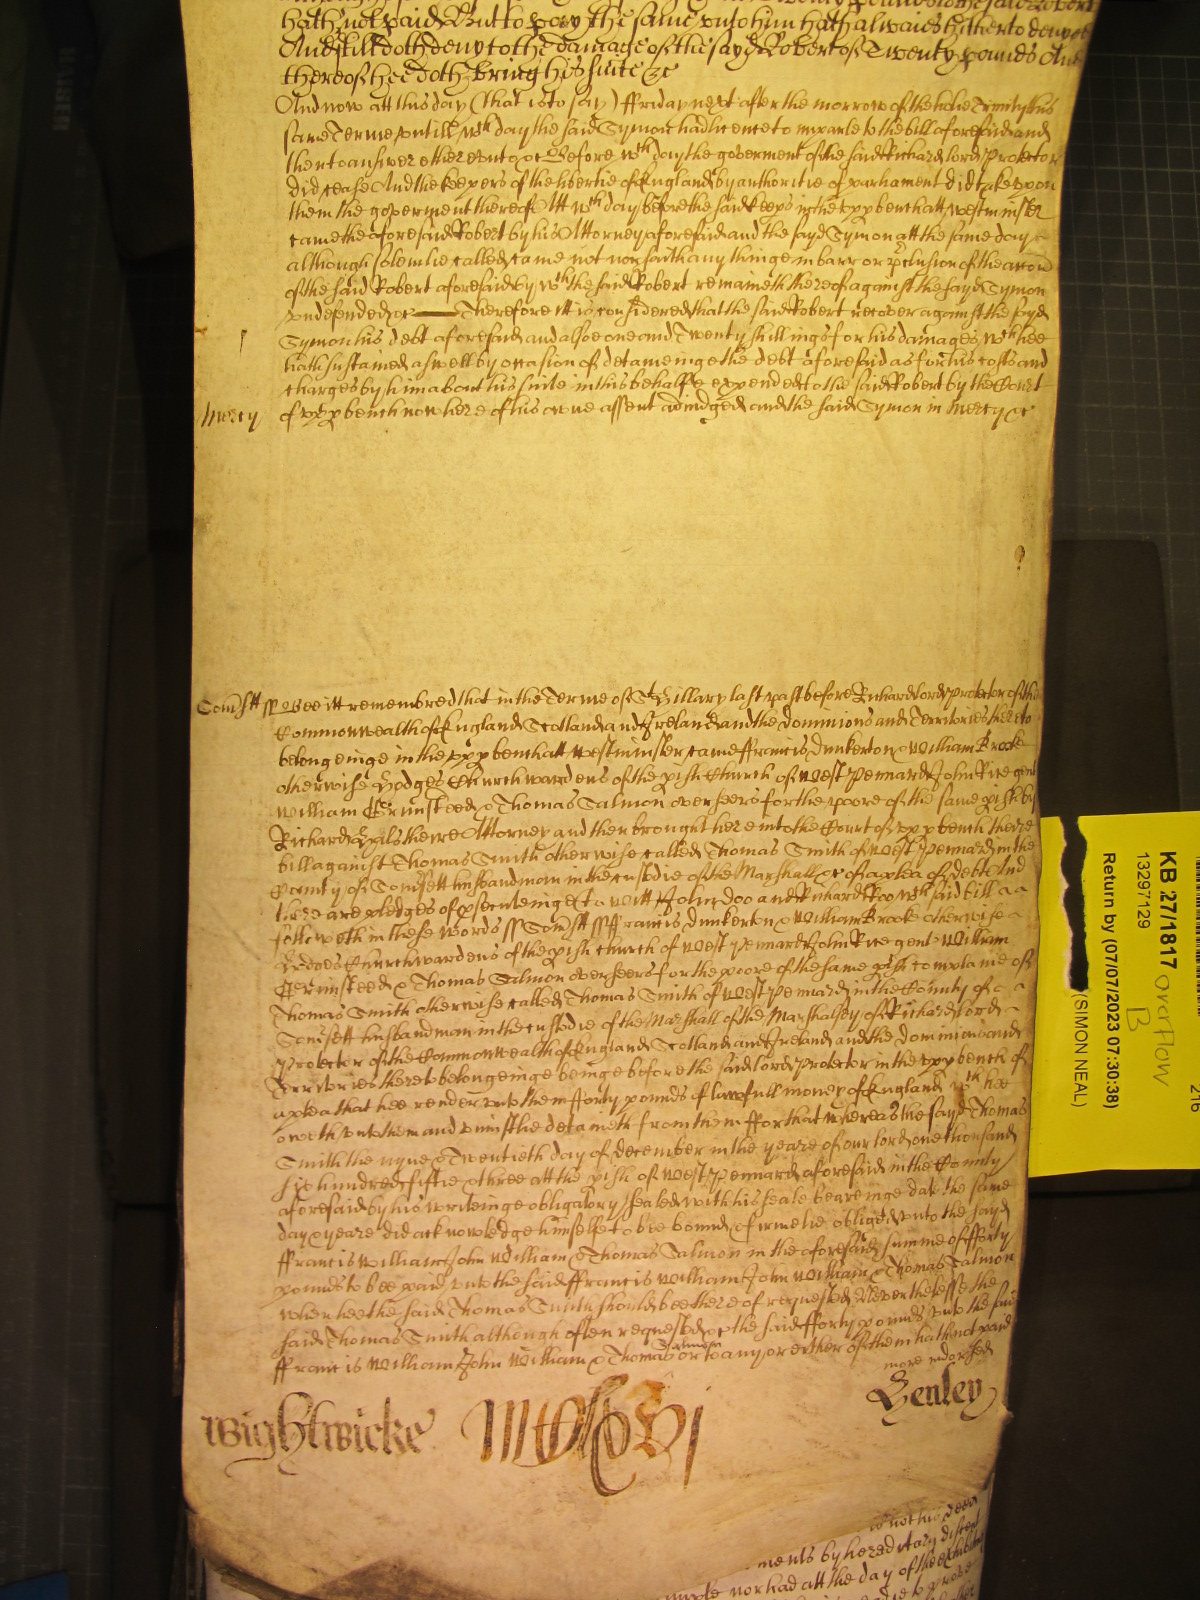 hath not paid But to pay the same unto him hath alwaies hitherto denyed
And still doth deny to the damage of the sayd Robert of Twenty pounds And
thereof hee doth bring his suite &c
And now att this day (that is to say) ffriday next after the morrow of the holie Trinity this
same Terme untill wch day the said Symon had licence to imparle to the bill aforesaid and
then to answer etc before wch day the goverment of the said Richard lord protector
did cease And the keepers of the libertie of England by authoritie of parliament did take upon
them the goverment thereof Att wch day before the said keeps in the upp bench att westminster
came the aforesaid Robert by his Attorney aforesaid and the sayd Symon att the same day
although solemlie called came not nor saith any thinge in barr or pclusion of the accon
of the said Robert aforesaid by wch the said Robert remaineth thereof against the sayd Symon
undefended &c Therefore itt is considered that the said Robert recover against the sayd
Symon his debt aforesaid and alsoe one and Twenty shillings for his damages wch hee
hath sustained aswell by occasion of detaineinge the debt aforesaid as for his costs and
charges by him about his suite in this behalfe expended to the said Robert by the Court
Mercy of upp bench now here of his owne assent adiudged and the said Symon in Mercy &c
Somsett ss Bee itt remembred that in the Terme of St Hillary last past before Richard lord protector of the
Commonwealth of England Scotland and Ireland and the dominions and Territories thereto
belongeinge in the upp bench att westminster came ffrancis Dunkerton & William Brooke
otherwise Hodges Churchwardens of the pish Church of West Pennard John Rice gent
William Grinsteed & Thomas Salmon overseers for the poore of the same pish by
Richard their Attorney and then brought here into the Court of upp bench there
bill against Thomas Smith otherwise called Thomas Smith of West Pennard in the
County of Somsett husbandman in the custodie of the Marshall &c of a plea of debt And
there are pledges of psecuteinge to witt John Doo and Richard Roo wch said bill
followeth in these words ss Somsett ss ffrancis Dunkerton & William Brooke otherwise
Hodges Churchwardens of the pish church of West Pennard John Rice gent William
Grinsteed & Thomas Salmon overseers for the poore of the same pish complaine of
Thomas Smith otherwise called Thomas Smith of West Pennard in the County of
Somsett husbandman in the custodie of the Marshall of the Marshalsey of Richard lord
Protector of the Commonwealth of England Scotland and Ireland and the dominions and
Territories thereto belongeinge beinge before the said lord protector in the upp bench of
a plea that hee render unto them fforty pounds of lawfull money of England wch hee
oweth unto them and uniustlie detaineth from them ffor that whereas the sayd Thomas
Smith the nyne & Twentieth day of December in the yeare of our lord one thousand
six hundred fiftie & three att the pish of West Pennard aforesaid in the County
aforesaid by his writeinge obligatory sealed with his seale beareinge date the same
day & yeare did acknowledge himselfe to bee bound & firmelie obliged unto the sayd
ffrancis William John William & Thomas Salmon in the aforesaid summe of fforty
pounds to bee paid unto the said ffrancis William John William & Thomas Salmon
when hee the said Thomas Smith should bee thereof requested Neverthelesse the
said Thomas Smith although often requested &c the said fforty pounds unto the said
ffrancis William John William & Thomas Salmon or to any or either of them hath not paid
more endorsed
Wightwicke
Henley
is not his deed
ments by hereditary discent
nor had att the day of the exhibiting
KB 27/1817 overflow
B
13297129
Return by (07/07/2023 07:30:38)
(SIMON NEAL)
216